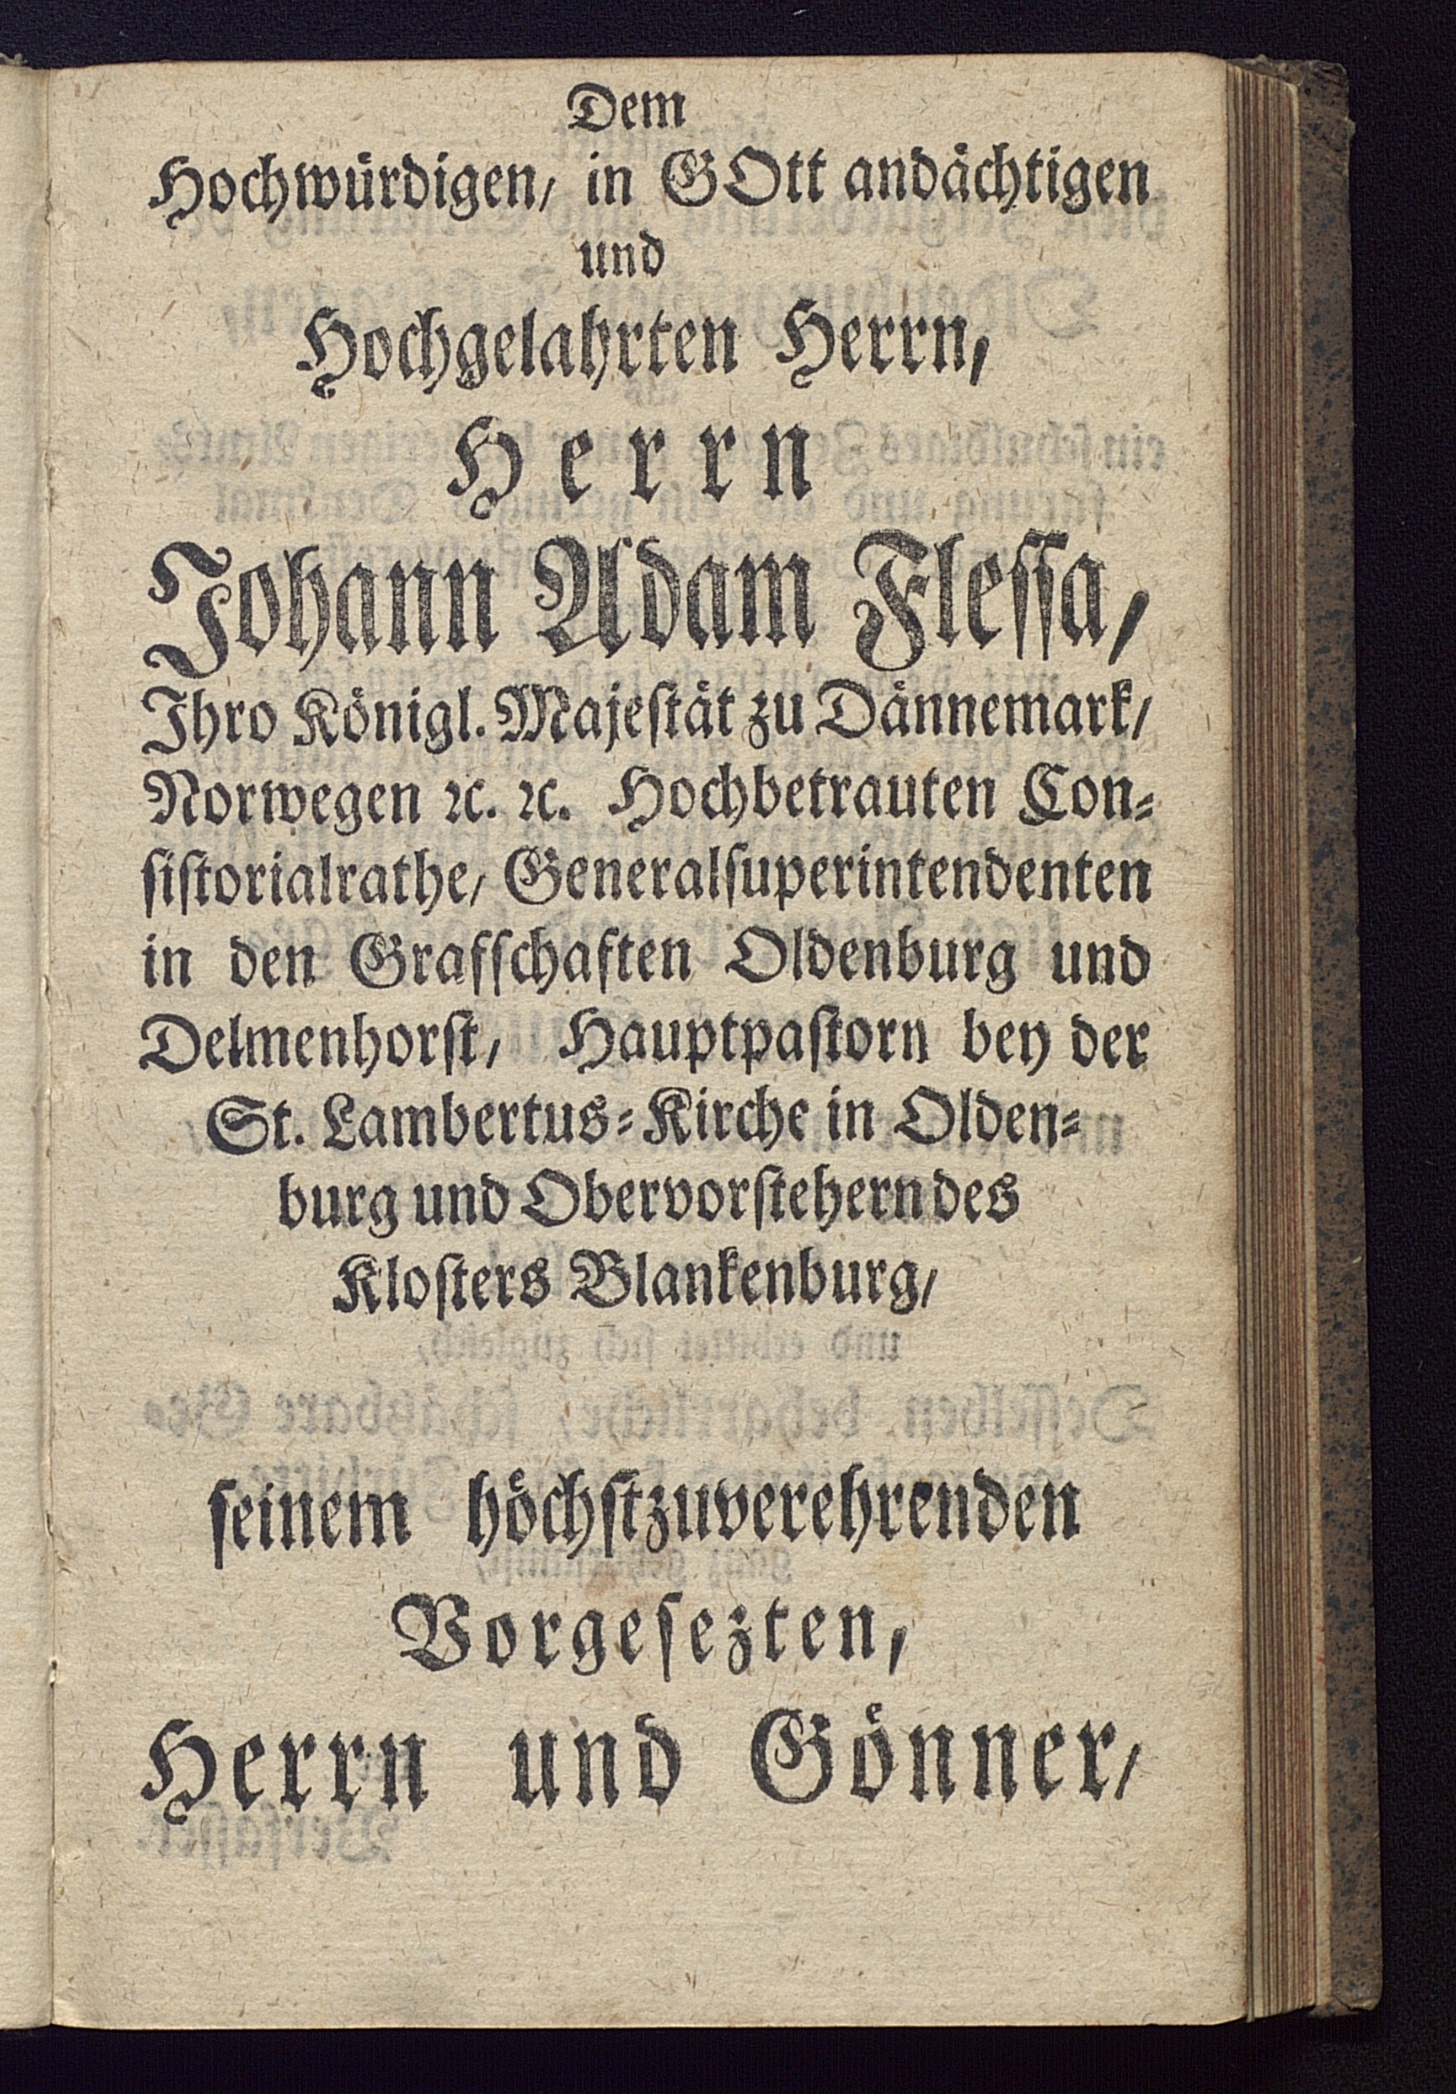 Dem
Hochwürdigen/ in GOtt andächtigen
und
Hochgelahrten Herrn,
Herrn
Johann Adam Flessa,
Ihro Königl. Majestät zu Dännemark/
Norwegen ꝛc. ꝛc. Hochbetrauten Con-
sistorialrathe/ Generalsuperintendenten
in den Grafschaften Oldenburg und
Delmenhorst/ Hauptpastorn bey der
St. Lambertus-Kirche in Olden-
burg und Obervorstehern des
Klosters Blankenburg/
seinem höchstzuverehrenden
Vorgesezten,
Herrn und Gönner/